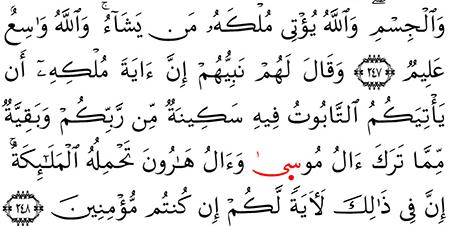 وَٱلْجِسْمِۖ وَٱللَّهُ يُؤْتِى مُلْكَهُۥ مَن يَشَآءُۚ وَٱللَّهُ وَٰسِعٌ
عَلِيمٌ ٢٤٧ وَقَالَ لَهُمْ نَبِيُّهُمْ إِنَّ ءَايَةَ مُلْكِهِۦٓ أَن
يَأْتِيَكُمُ ٱلتَّابُوتُ فِيهِ سَكِينَةٌ مِّن رَّبِّكُمْ وَبَقِيَّةٌ
مِّمَّا تَرَكَ ءَالُ مُوسَىٰ وَءَالُ هَٰرُونَ تَحْمِلُهُ ٱلْمَلَٰٓئِكَةُۚ
إِنَّ فِى ذَٰلِكَ لَءَايَةً لَّكُمْ إِن كُنتُم مُّؤْمِنِينَ ٢٤٨